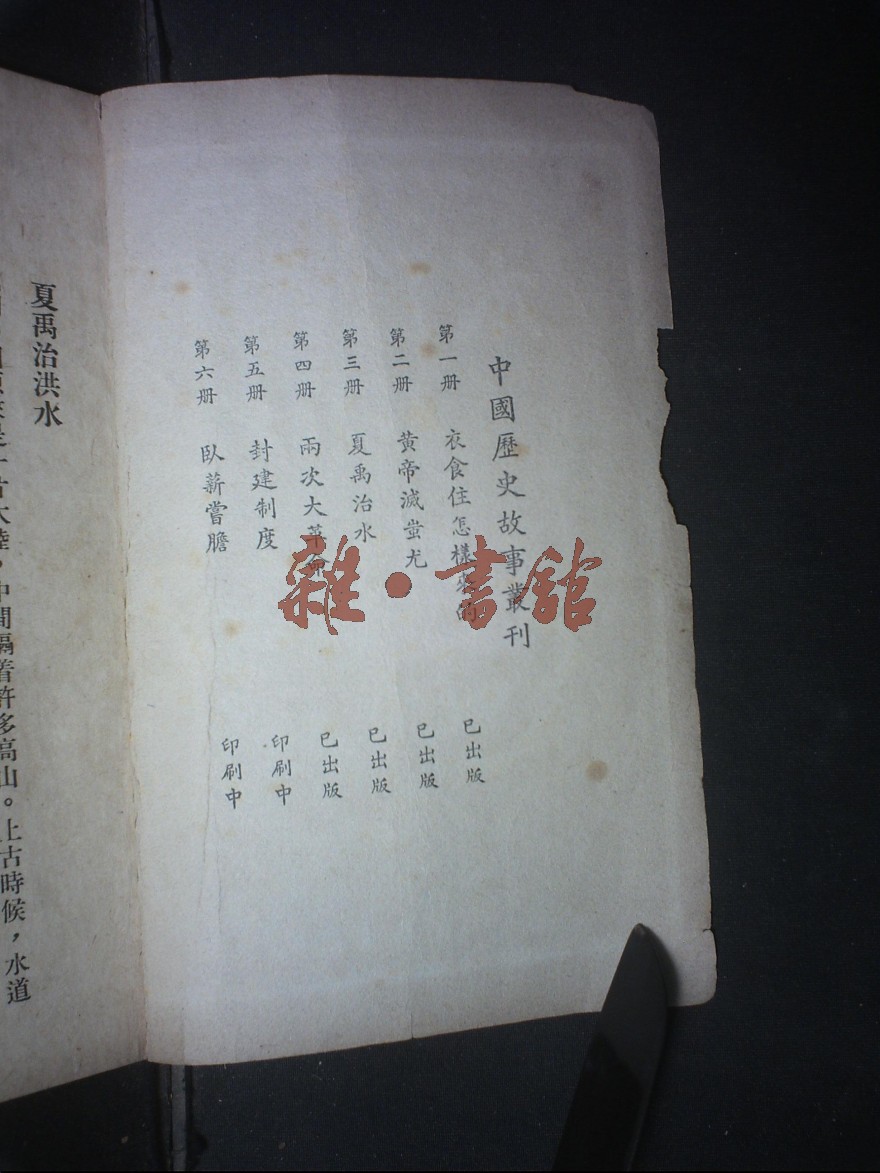 中國歷史故事叢刊
第一册 衣食住怎樣來的 已出版
第二册 黄帝滅蚩尤 已出版
第三册 夏禹治水 已出版
第四册 兩次大革命 已出版
第五册 封建制度 印刷中
第六册 臥薪嘗膽 印刷中
雜·書館
夏禹治洪水
大陸,中間隔着許多高山。上古時候,水道